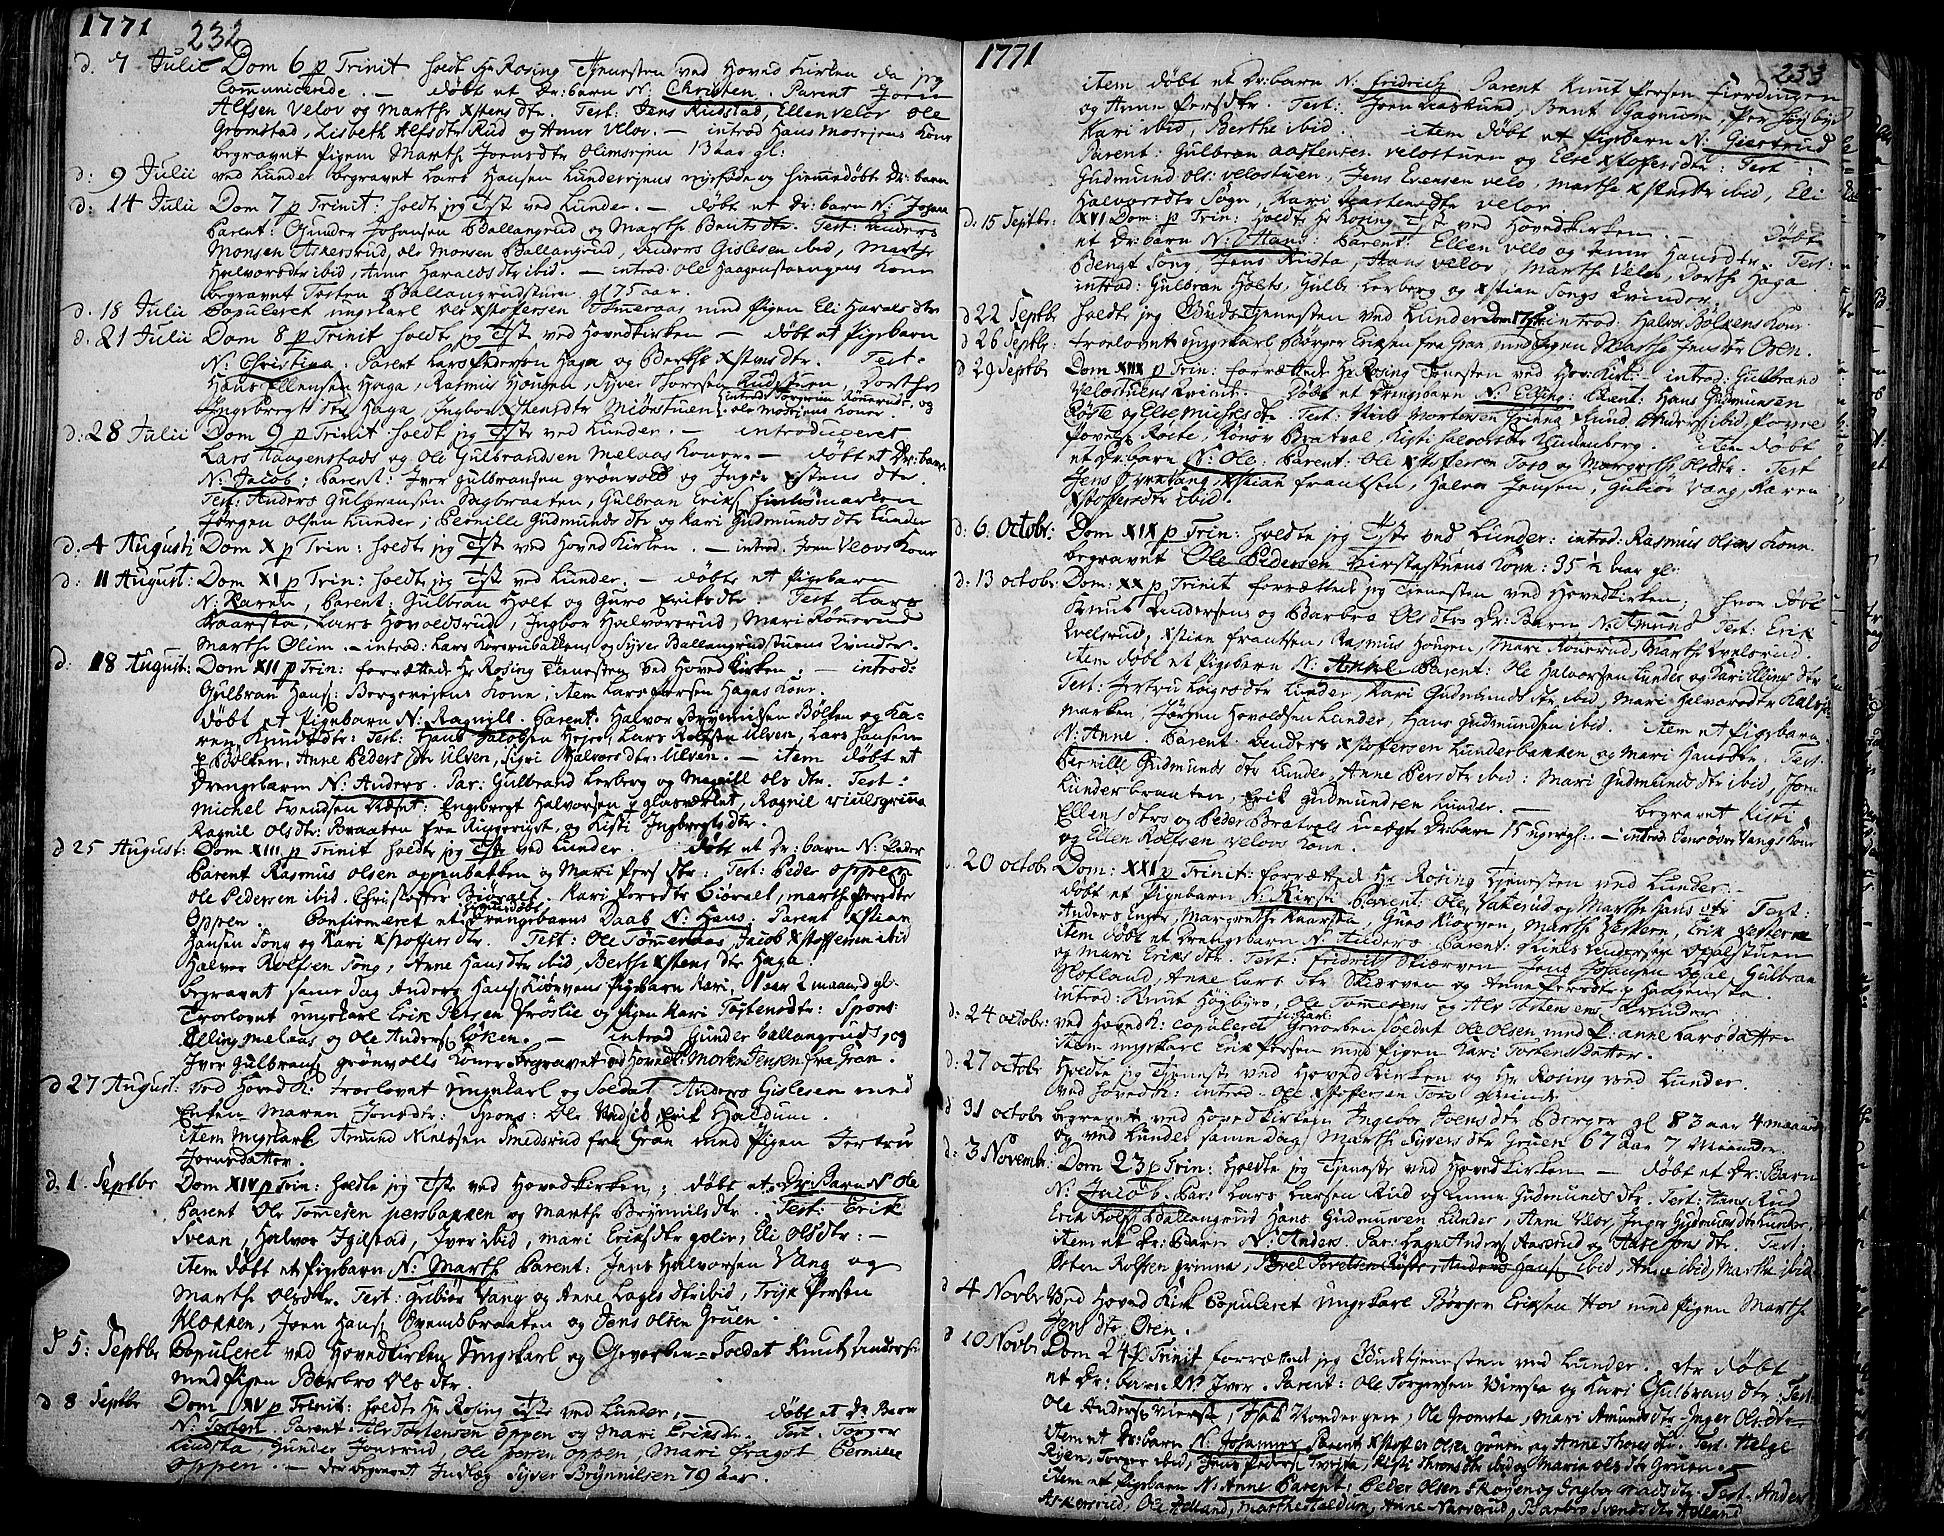 1771 232
d. 7 Julii Dom 6 p Trinit holdt Hr Rosing Tjenesten ved Hoved Kirken da jeg
Communicerede. — døbt et Dr: barn N: Christen. Parent Joen
Alfsen Velov og Marthe Xstensdtr. Test: Jens Rudstad, Ellen Velov Ole
Gromstad, Lisbeth Alfsdtr Rud og Anne Vlov. — introd Hans Mosejens Kone
begravet Pigen Marthe Joensdtr Olimsejen 13 aar gl:
d: 9 Julii ved Lunder begravet Lars Hansen Lundersejens nyeføde og hiemmedøbte Dr: barn
d: 14 Julii Dom 7 p Trinit: holdt jeg Tjst ved Lunder. — døbt et Dr: barn N: Johan
Parent: Gunder Johansen Ballangrud og Marthe Bentsdtr. Test: Anders
Monsen Askersrud, Ole Monsen Ballangrud, Anders Gislesen ibid, Marthe
Halvorsdtr ibid, Anne Haraldsdtr ibid. — introd: Ole Haagenstaengens Kone
begravet Tosten Ballangrudstuen gl 75 aar
d. 18 Julii Copuleret ungekarl Ole Xstophersen Tømeraas med Pigen Eli Haralsdtr
d: 21 Julii Dom 8 p Trinit holdt jeg Tjst ved Hovedkirken — døbt et Pigebarn
N: Christina. Parent Lars Pedersøn Haga og Berthe Xstensdtr. Test.
Hans Ellensen Haga, Rasmus Hougen, Syver Thoresen Rudstuen, Dorthe
Ingebregtsdtr Haga, Ingbor Xstensdtr Miønstuen. introd: Torgrim Rønnerude, og
Ole Mosejens Koner.
d: 28 Julii Dom 9 p Trinit holdt jeg Tjste ved Lunder. — introduceret
Lars Haagenstads og Ole Gulbrandsen Melaas Koner. — døbt et Dr: barn
N: Jacob; Parent: Iver Gulbransen grønvold og Inger Xstens dtr.
Test: Anders Gulbransen Bagbraaten, Gulbran Eriks: Finlismarken
Jørgen Olsen Lunder, Pernille Gudmunds dtr og Kari Gudmunds dtr Lunder
d. 4 Augusti Dom X p Trin: holdt jeg Tjst ved Hoved Kirken. — introd. Joen Vlovs Kone
d: 11 August: Dom XI p Trin: holdt jeg Tjst ved Lunder. — døbte et Pigebarn
N: Karen, Parent: Gulbran Holt og Guro Eriksdtr. Test Lars
Kaarsta, Lars Hovoldsrud, Ingbor Halvorsrud, Mari Rønnerud
Marthe Olim. — introd: Lars Korsrubakkens og Syver Ballangrudstuens Qvinder.
d: 18 August: Dom XII p Trin: forrættede Hr Rosing Tjenesten ved Hoved Kirken. — introd:
Gulbran Hans: Bergersejens Kone, item Lars Persen Hagas Kone.
døbt et Pigebarn N: Ragnill. Parent. Halvor Brynnildsen Bølken og Ka-
ren Knudsdtr: Test: Hans Jacobsen Hejre, Lars Rolfsen Ulven, Lars Hansen
p Bølken, Anne Peders dtr Ulven, Sigri Halvors dtr: Ulven. — item døbt et
Drengebarn N: Anders. Par: Gulbrand Lerberg og Magnill Ols dtr. Test:
Michel Svendsen Næset: Engebregt Halvorsen p glasværket, Ragnil Niulsgrinna
Ragnil Olsdtr: Braaten fra Ringerigst, og Kisti Ingbregtsdtr.
d 25 August: Dom XIII p Trinit holdt jeg Tjste ved Lunder. døbt et Dr: barn N: Peder
Parent Rasmus Olsen oppenbakken og Mari Pers dtr: Test: Peder Oppen
Ole Pedersen ibid. Christoffer Biøræl. Kari Persdtr Biøræl, Marthe Persdtr
Oppen. Confirmeret et hiemmedøbt Drengebarns Daab N: Hans. Parent Xstian
Hansen Song og Kari Xstophersdtr. Test: Ole Tømeraas, Jacob Xstoffersen ibid
Halvor Rolfsen Song, Anne Hansdtr ibid, Berthe Xstens dtr Haga.
begravet same dag Anders Hans: Kiørvens Pigebarn Kari, 1 aar 2 maaned gl.
Troelovet ungekarl Erik Persen Frøslie og Pigen Kari Tostensdtr: Spons:
Elling Melaas og Ole Anders: Løken. — introd Gunder Ballangruds, og
Iver Gulbrans: grønvolls Koner begravet ved Hovedk: Morten Jensen fra Gran.
d 27 August: ved Hoved K: troelovet ungekarl og Soldat Anders Gislesen med
Enken Maren Jonsdtr: Spons: Ole Veds ib Erik Haldum.
item ungekarl Amund Nielssen Smedsrud fra Gran med Pigen Jertru
Joensdatter.
d. 1. Septbr Dom XIV p Trin: holdte jeg Tjst ved Hovedkirken; døbt et Dr: Barn N Ole
Parent Ole Tommesen persbakken og Marthe Brynnilsdtr. Test: Erik
Svean, Halvor Igelstad, Iver ibid, Mari Eriksdtr golie, Eli Olsdtr: —
item døbt et Pigebarn N: Marthe Parent: Jens Halvorsen Vang og
Marthe Olsdtr. Test: Gubiør Vang og Anne Lagesdtr ibid, Trijk Persen
Klokken, Joen Hans: Svendsbraaten og Jens Olsen Gruen.
d 5: Septbr Copuleret ved Hovedkirken Ungekarl og Geworben-Soldat Knut Anders:
med Pigen Barbro Ols dtr.
d 8 Septbr Dom XV p Trinit: holdt Hr Rosing Tjste ved Lunder, — døbt et Dr Barn
N: Tosten. Parent: Alv Tostensen Oppen og Mari Eriksdtr. Test. Torger
Rudsta, Gunder Jonsrud, Ole Persen Oppen, Mari Fragot, Pernille
Oppen. — der begravet Indlæg Syver Brynnilsen 79 aar.
1771 233
item døbt et Dr: barn N: Fridrich Parent Knut Persen Fierdingen
og Anne Persdtr. Test: Joen Aaslund, Bent Bagmoen, Per Høybye
Kari ibid, Berthe ibid. item døbt et Pigebarn N: Giertrud
Parent: Gulbran Aastensen Velostuen og Else Xstoffersdtr: Test:
Gudmund Ols: Velostuen, Jens Evensen Velo, Marthe Xstensdtr ibid, Eli
Halvorsdtr Sogn, Kari Aastensdtr Velov
d. 15 Septbr: XVI Dom: p Trin: Holdte Hr Rosing Tjst ved Hovedkirken. — døbt
et Dr: barn N: Hans: Parent: Ellen Vello og Anne Hansdtr. Test:
Bengt Song, Jens Rusta, Hans Velov, Marthe Velov, Dorthe Haga
introd: Gulbran Holts, Gulb: Lerberg og Xstian Songs Qvinder.
d 22 Septbr holdt jeg Guds Tjenesten ved Lunder Dom 17 p Trin introd: Halvor Bølkens Kone
d 26 Septbr: troelovet ungekarl Børger Eriksen fra Gran med Pigen Marthe Jensdtr Oren.
d 29 Septbr Dom XIIX p Trin: forrettede Hr Rosing Tjenesten ved Hov: Kirk: — introd: Gulbrand
Velostuens Kvinde. Døbt et Drengebarn N: Elling: Parent: Hans Gudmunsen
Røste og Else Nielsdtr. Test: Niels Mortensen Grinna, Amund Anders: ibid, Povel
Povels: Røste, Rønov Bratval, Kisti Halvorsdtr Vindenberg. item døbt
et Dr: barn N: Ole: Parent: Ole Xstoffersen Toso og Margrethe Olsdtr. Test
Jens Øvrevang, Xstian Frantsen, Halvor Jensen, Gubiør Vang, Karen
Xstoffersdtr ibid.
d: 6. Octobr: Dom XIX p Trin: Holdte jeg Tjste ved Lunder: introd: Rasmus Olsens Kone.
begravet Ole Pedersen Kirstastuens Kone: 35 ½ aar gl:
d: 13 octobr Dom: XX p Trinit forrettede jeg Tjenesten ved Hovedkirken, hvor døbt
Knut Andersens og Barbro Olsdtrs Dr: Barn N: Amund Test: Erik
Evelsrud, Xstian Frantsen, Rasmus Hougen, Mari Rønnerud, Marthe Evelsrud.
item døbt et Pigebarn N: Anne Parent: Ole Halvorsen Lunder og Kari Ellins dtr
Test: Jertru Leigesdtr Lunder, Kari Gudmundsdtr ibid, Mari Halvorsdtr Kalvsje
marken, Jørgen Hovoldsen Lunder, Hans Gudmundsen ibid. item et Pigebarn
N: Anne. Parent: Anders Xstoffersen Lunderbakken og Mari Hansdtr. Test:
Pernille Gudmunds dtr Lunder, Anne Persdtr ibid: Mari Gudmundsdtr ibid, Joen
Lunderbraaten, Erik Gudmundsen Lunder. — begravet Kisti
Ellensdtrs og Peder Bratvals uægte Dr barn 15 uger gl: — introd Jens Øvre Vangs Kone
og Ellen Rolfsen Velovs Kone.
20 octobr Dom: XXI p Trinit: forrettede Hr Rosing Tjenesten ved Lunder. —
døbt et Pigebarn N: Kirsti Parent: Ole Vakerud og Marthe Hans dtr Test:
Anders Enger, Margrethe Kaarsta, Guro Kiørven, Marthe Festern, Erik Festerne
item døbt et Drengebarn N: Anders. Parent: Niels Andersen Opalstuen
og Mari Eriksdtr. Test: Fridrik Skiærven Jens Johansen Opal, Gulbran
Hofland, Anne Lars dtr Skiærven og Anne Persdtr p Haagensta.
introd: Knut Høybyes, Ole Tommesens og Alv Tostensens Qvinder
d: 24 octobr: ved Hoved K: Copuleret Geworben Soldat Ole Olsen med P: Anne Larsdatter
item ungekarl Erik Persen med Pigen Kari Tostensdatter.
d: 27 octobr Holdte jeg Tjeneste ved Hoved Kirken og Hr Rosing ved Lunder.
Ved Hoved K: introd. Ole Xstoffersen Toso Qvinde
d 31 octobr begravet ved Hovedkirken Ingebor Joensdtr Berger gl 83 aar 4 maaned
og ved Lunder samme dag Marthe Syversdtr Gruen 67 Aar 7 Maaneder.
d: 3 Novembr: Dom 23 p Trin: Holdte jeg Tjeneste ved Hovedkirken — døbt et Dr: Barn
N: Jacob. Par: Lars Larsen Rud og Anne Gudmunds dtr. Test: Hans Rud
Erik Rolfs: Ballangrud Hans Gudmunsen Lunder, Anne Vlov, Inger Gudmunsdtr Lunder,
item et Dr: Barn N: Anders Par: Hage Anders: Aaserud og Aase Jonsdtr. Test:
Østen Rolfsen grinna, Povel Povelsen Røste, Anders Hans: ibid, Anne ibid, Marthe ibid
d 4 Novbr Ved Hoved Kirk Copuleret Ungekarl Børger Eriksen Hov med Pigen Marthe
Jensdtr Oren.
d 10 Novbr Dom 24 p Trinit forrettede jeg Gudstjenesten ved Lunder. der døbt
et Dr: barn N: Iver. Parent: Ole Torgersen Viersta og Kari Gulbrans dtr: Test:
Ole Anders: Vierste, Ole Gromsta, Mari Amundsdtr Inger Olsdtr
item et Dr: barn N: Johannes Parent Xstoffer Olsen gruen og Anne Thoresdtr. Test: Helge
Rojen, Torger ibid, Jens Peders: Tresta, Kisti Thronsdtr ibid og Maria Olsdtr Gruen.
item et Pigebarn N: Anne Parent: Peder Olsen Skøyen og Ingbor Madsdtr. Test: Anders
Askersrud, Ole Adland, Marthe Haldum, Anne Narverud, Barbro Svendsdtr Adland